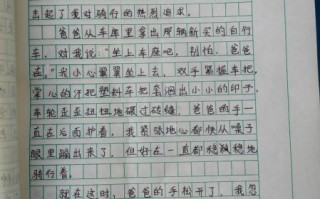 出起了我对骑行的热烈追求。
爸爸从车库里拿出那辆新买的自行
车,对我说:“坐上车座吧,别怕,爸爸
在。”我小心翼翼坐上去,双手紧握车把,
掌心的汗把塑料车把洇出小小的印子。
车轮歪歪扭扭地碾过砖缝,爸爸的手一
直在后面护着,我紧张地心都快从嗓子
眼里蹦出来了,但好在一直都稳稳稳地
骑行着。
就在这时,爸爸的手松开了,我忽